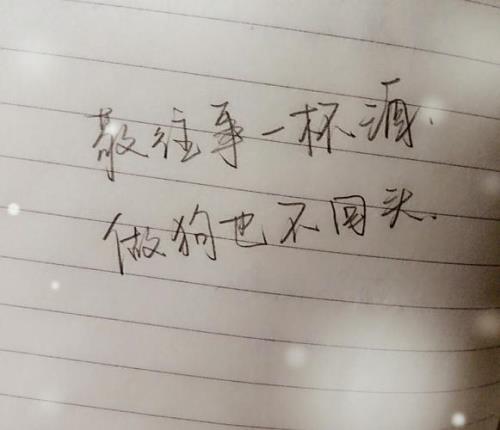 敬往事一杯酒.
做狗也不回头.